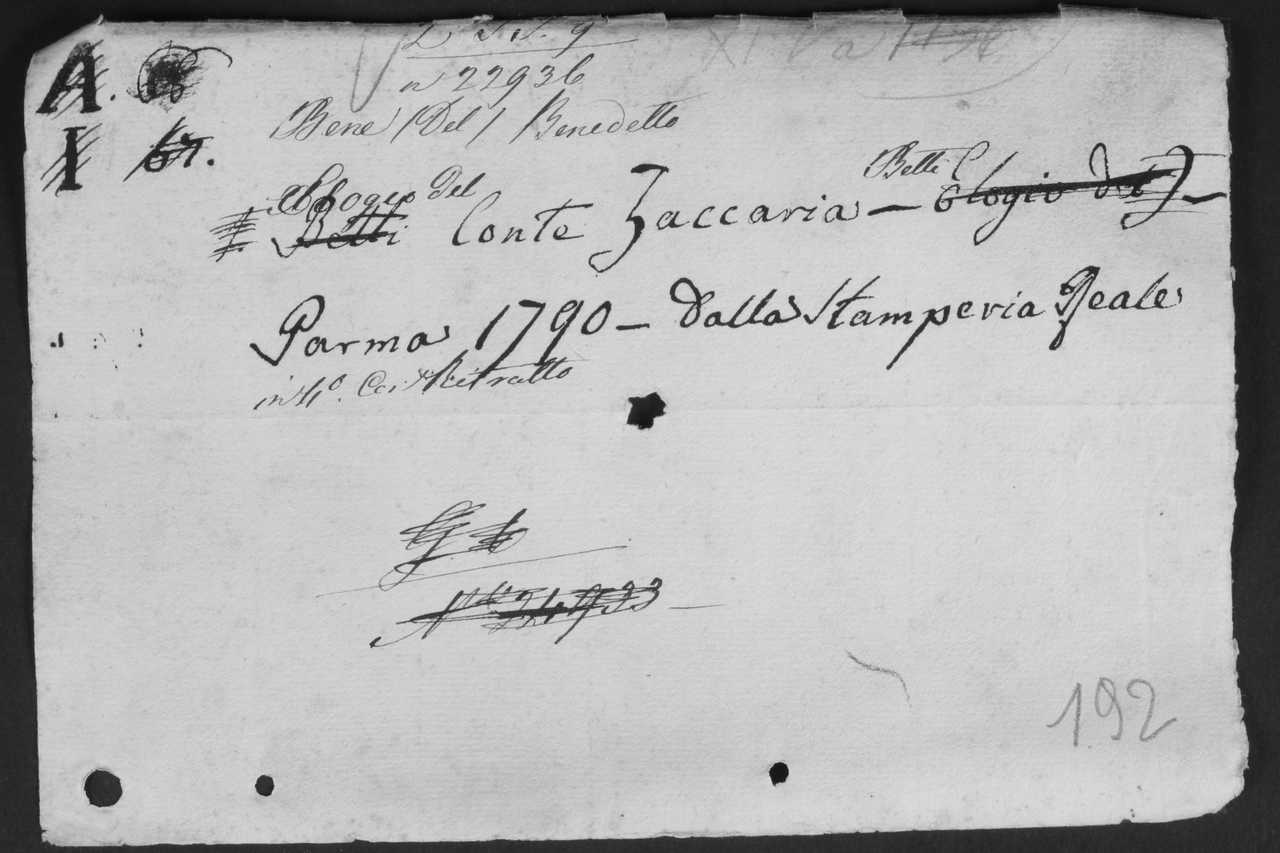 A.
I 67.
n 22936
Bene (Del) Benedetto
Elogio del Betti C
Betti Conte Zaccaria — Elogio del
Parma 1790 — dalla Stamperia Reale
in 4.º Con Ritratto
192